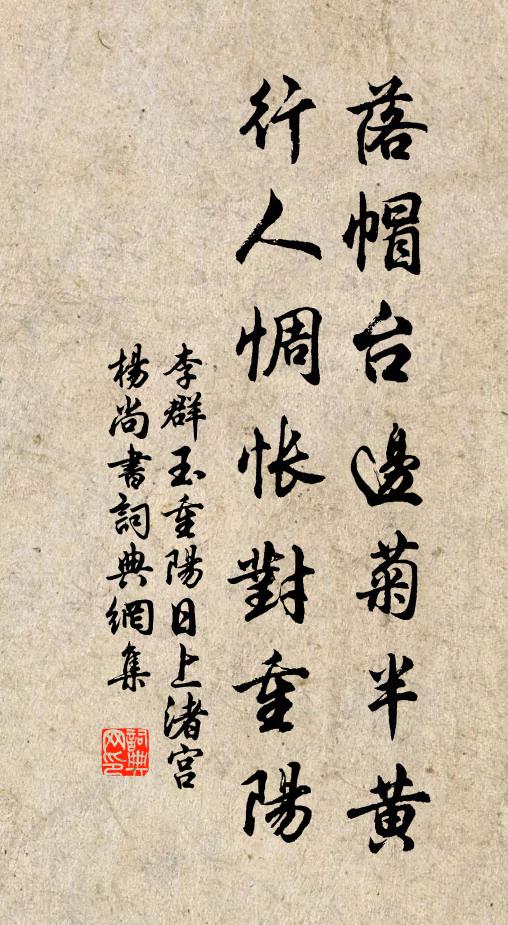 落帽台邊菊半黃
行人惆悵對重陽
李群玉重陽日上渚宮
楊尚書詞典網集
詞典网印